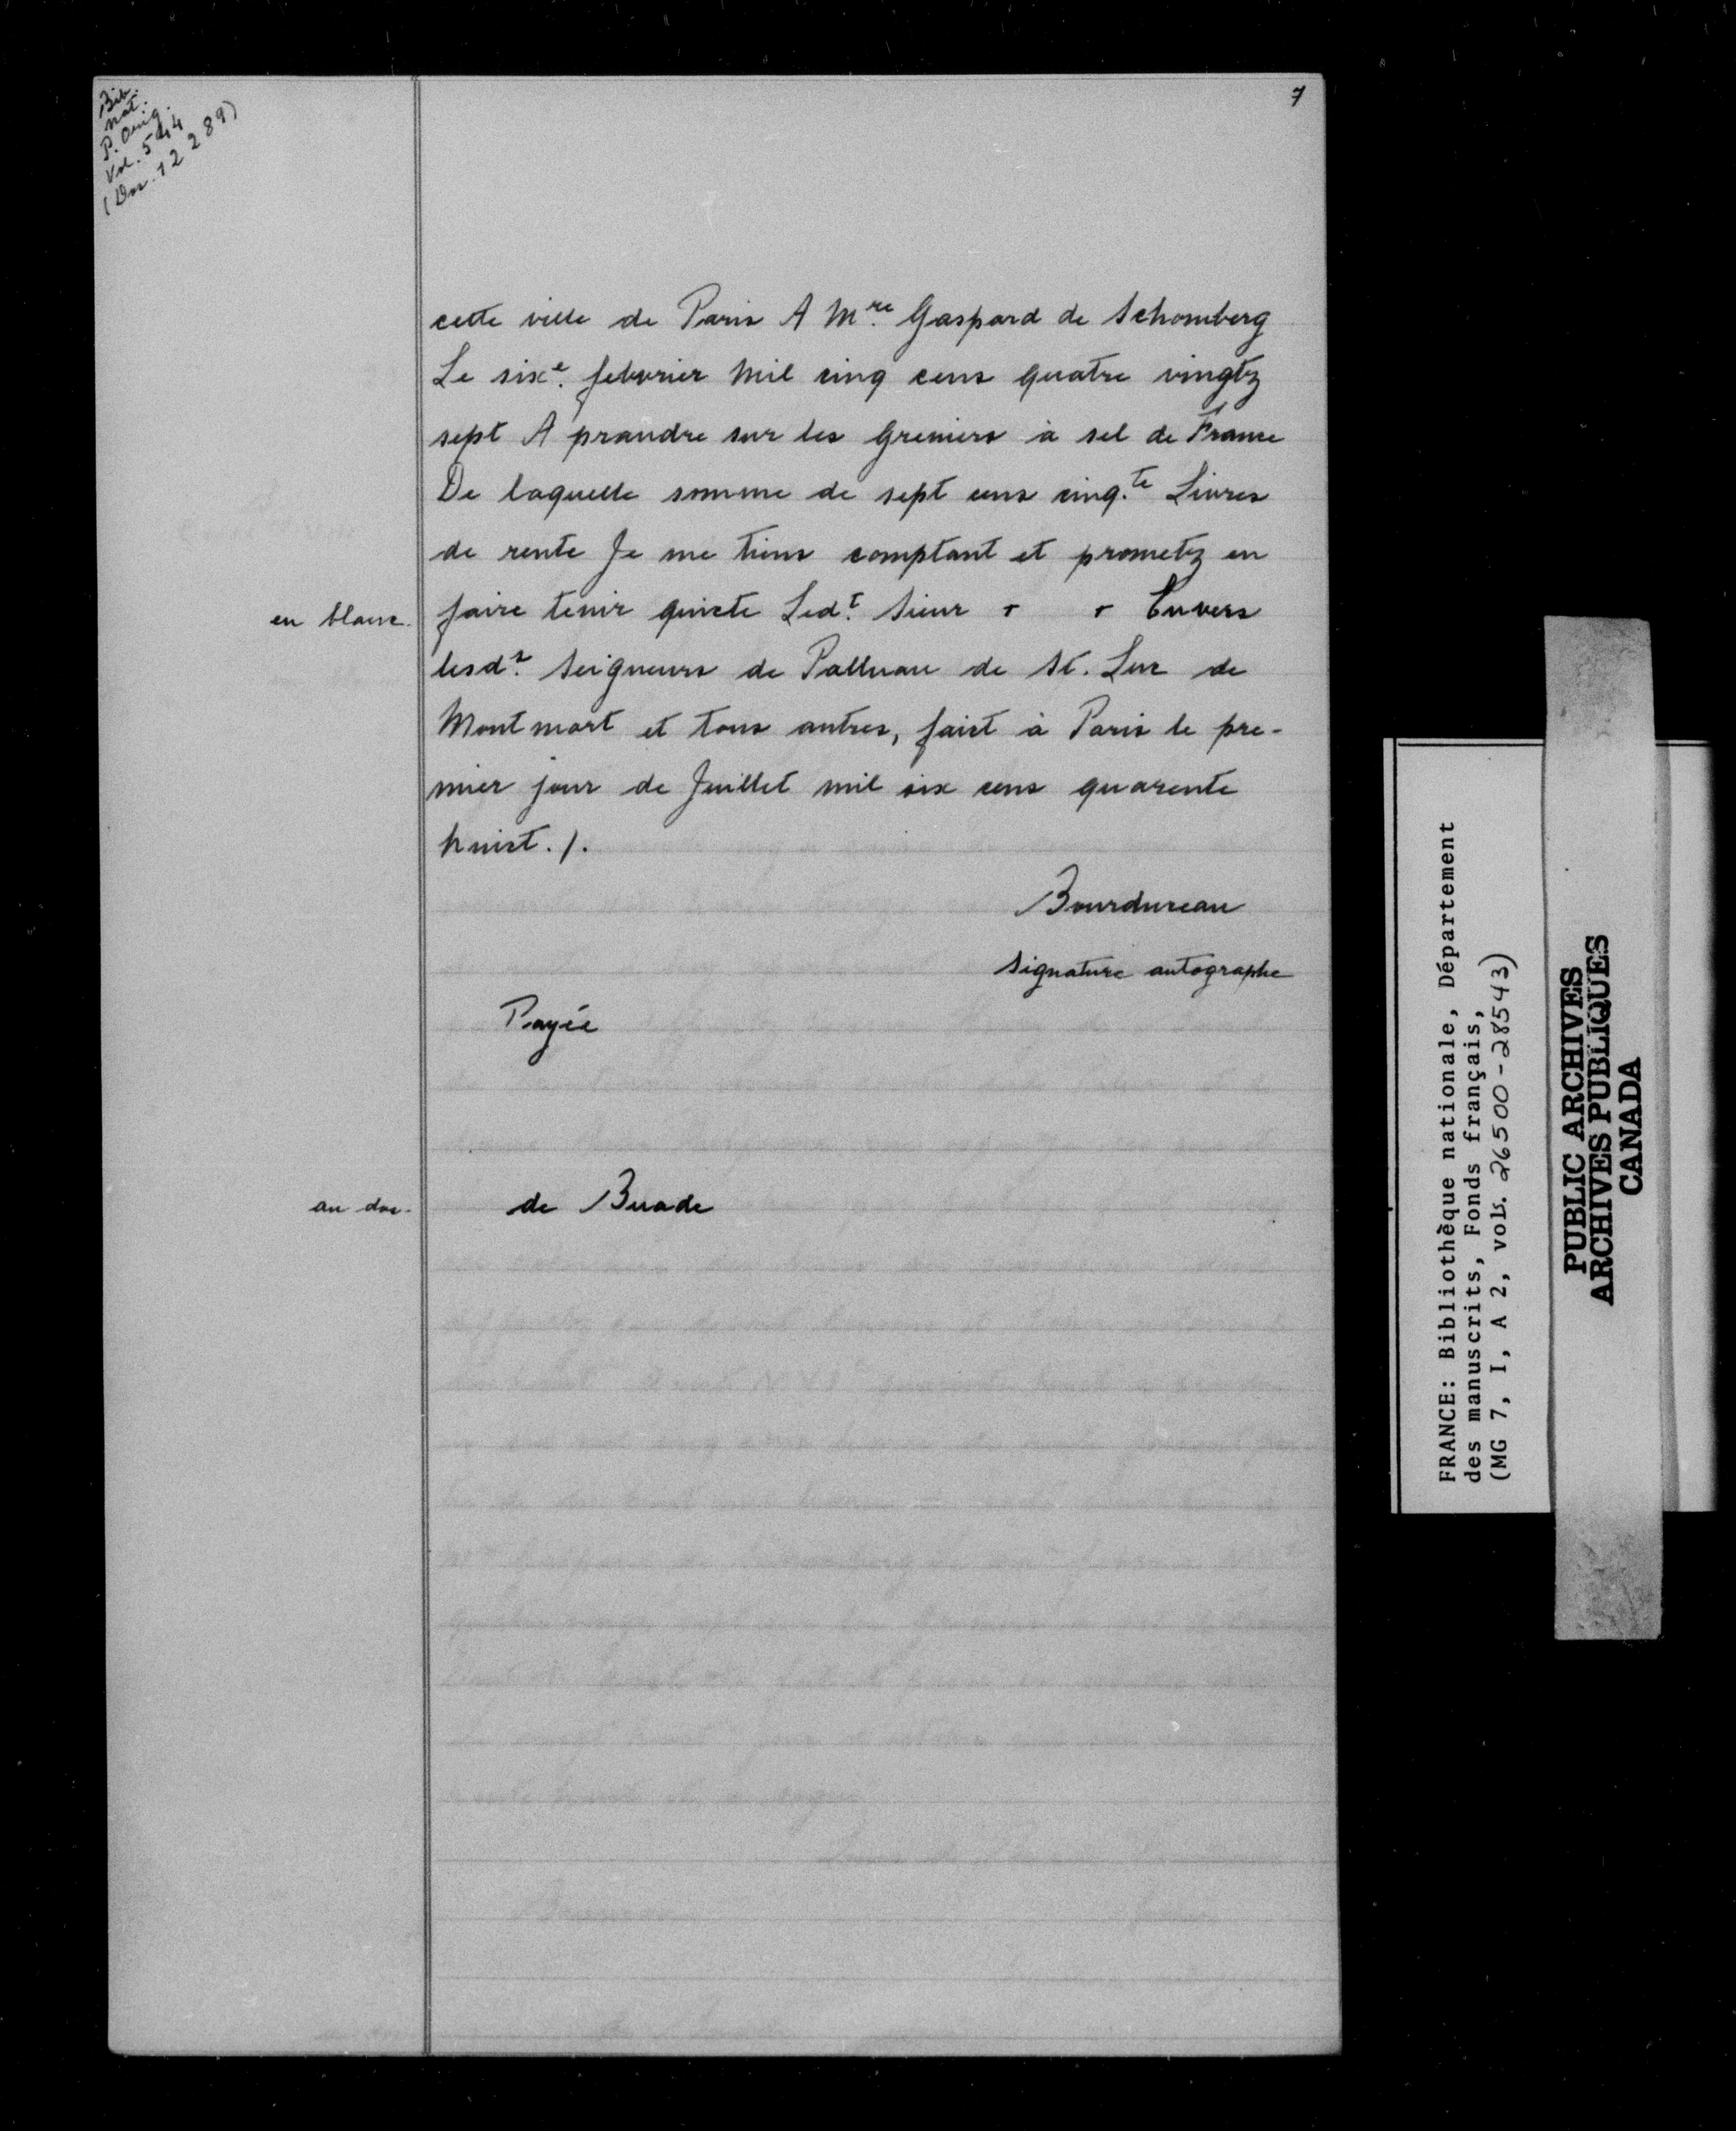 7
Bib.
nat.
P. Orig.
Vol. 544
(Dos. 12289)
cette ville de Paris A M.re Gaspard de Schomberg
Le six.e febvrier Mil cinq cens quatre vingtz
sept A prandre sur les Greniers à sel de France
De laquelle somme de sept cens cinq.te Livres
de rente Je me tiens comptant et prometz en
en blanc. faire tenir quicte Led.t Sieur + + Envers
lesd.s Seigneurs de Palluau de St. Luc de
Montmort et tous autres, faict à Paris le pre-
mier jour de Juillet mil six cens quarente
huict ./.
Bourdureau
signature autographe
Payée
au dos. de Buade
FRANCE: Bibliothèque nationale, Département
des manuscrits, Fonds français,
(MG 7, I, A 2, vols. 26500-28543)
PUBLIC ARCHIVES
ARCHIVES PUBLIQUES
CANADA